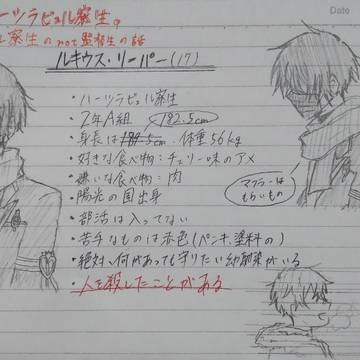 ハーツラビュル寮生。
ル寮生のnot監督生の話
Date
ルキウス・リーパー(17)
・ハーツラビュル寮生
・2年A組
182.5cm
・身長は 体重56kg
・好きな食べ物:チェリー味のアメ
・嫌いな食べ物:肉
・陽光の国出身
・部活は入ってない
・苦手なものは赤色(ペンキ、塗料の)
・絶対、何があっても守りたい幼馴染がいる
・人を殺したことがある
マフラーは
もらいもの